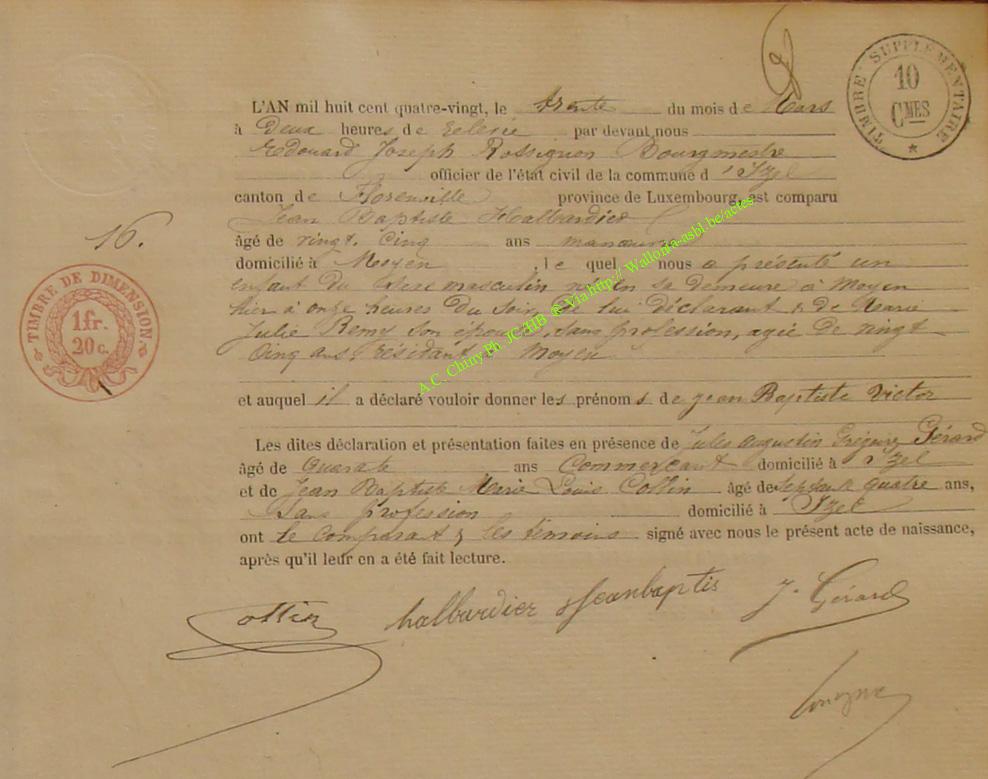 TIMBRE SUPPLÉMENTAIRE
10
CMES
L'AN mil huit cent quatre-vingt, le trente du mois de Mars
à Deux heures de relevée par devant nous
Edouard Joseph Rossignon Bourgmestre
officier de l'état civil de la commune d'Izel
canton de Florenville province de Luxembourg, est comparu
Jean Baptiste Halbardier
16.
âgé de vingt cinq ans manœuvre
domicilié à Moyen, lequel nous a présenté un
enfant du sexe masculin né en sa demeure à Moyen
hier à onze heures du soir de lui déclarant & de Marie
Julie Remy son épouse, sans profession, agée de vingt
Cinq ans, résidant à Moyen
TIMBRE DE DIMENSION
1 fr.
20 c.
et auquel il a déclaré vouloir donner les prénoms de Jean Baptiste Victor
Les dites déclaration et présentation faites en présence de Jules Augustin Grégoire Gérard
âgé de Quarante ans Commerçant domicilié à Izel
et de Jean Baptiste Marie Louis Collin âgé de septante quatre ans,
Sans profession domicilié à Izel
ont le comparant & les témoins signé avec nous le présent acte de naissance,
après qu'il leur en a été fait lecture.
halbardier Jeanbaptis J. Gérard
A.C. Chiny Ph. JC/HB ® Via http:// Wallonia-asbl.be/actes